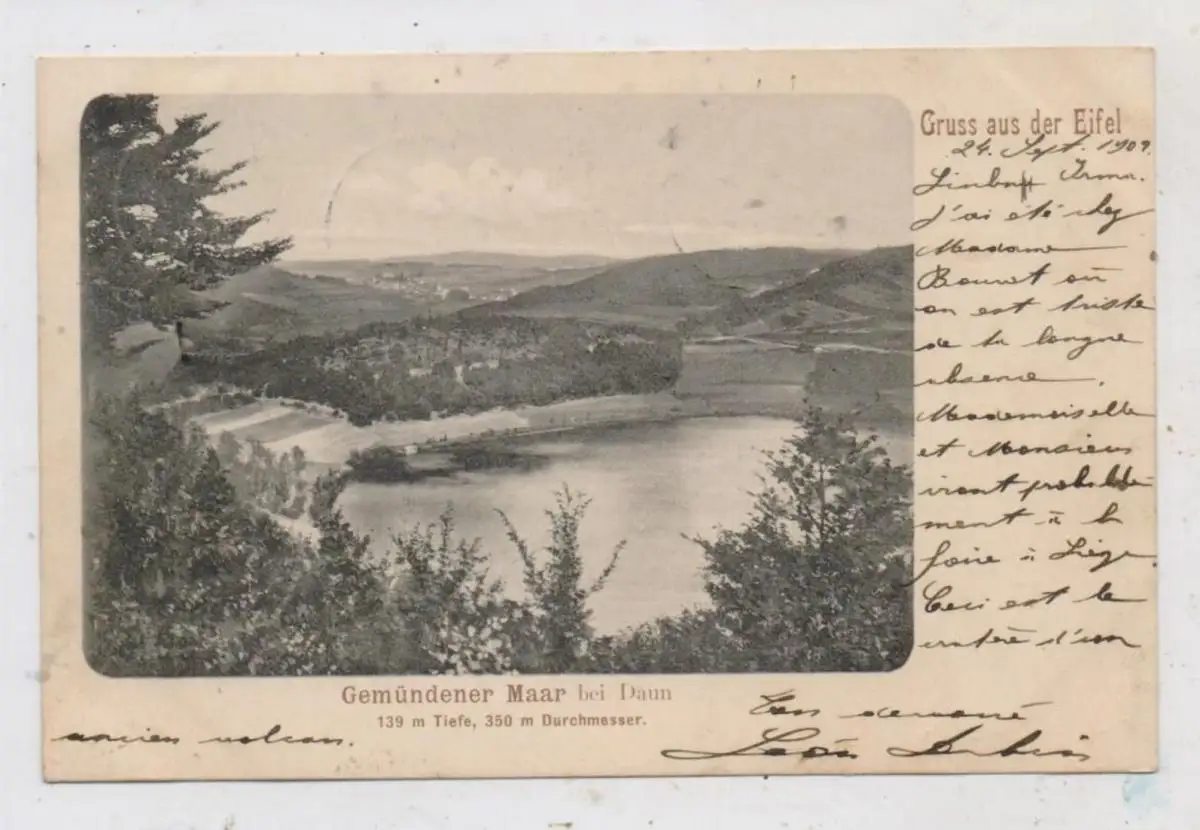 Gruss aus der Eifel
24. Sept. 1909.
Irma.
J'ai été chez
Madame
où
on est triste
de ta longue
absence.
Mademoiselle
et Monsieur
iront probable
ment à la
foire à Liège
Ceci est le
cratère d'un
ancien volcan.
Gemündener Maar bei Daun
139 m Tiefe, 350 m Durchmesser.
Ton devoué
Léon